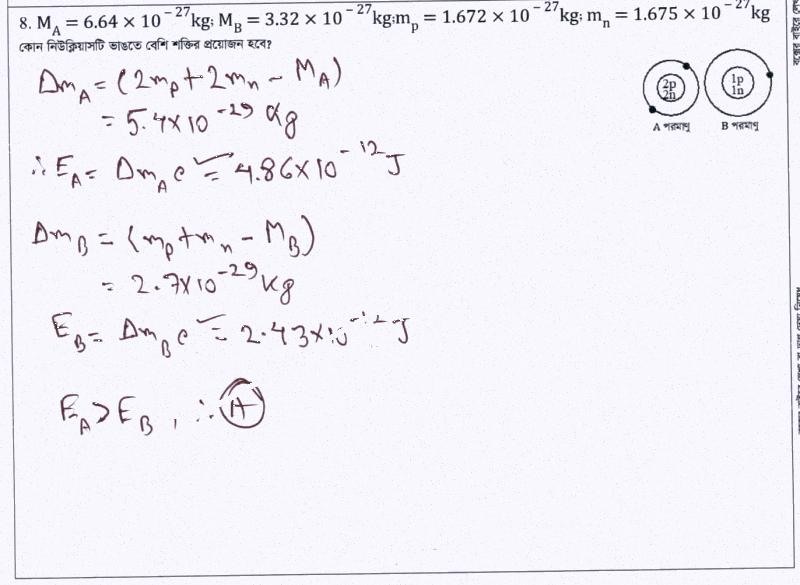 8. M_A = 6.64 × 10^-27 kg; M_B = 3.32 × 10^-27 kg; m_p = 1.672 × 10^-27 kg; m_n = 1.675 × 10^-27 kg
কোন নিউক্লিয়াসটি ভাঙতে বেশি শক্তির প্রয়োজন হবে?
2p
2n
A পরমাণু
1p
1n
B পরমাণু
Δm_A = (2m_p + 2m_n - M_A)
= 5.4×10^-29 kg
∴ E_A = Δm_A c² = 4.86×10^-12 J
Δm_B = (m_p + m_n - M_B)
= 2.7×10^-29 kg
E_B = Δm_B c² = 2.43×10^-12 J
E_A > E_B, ∴ A